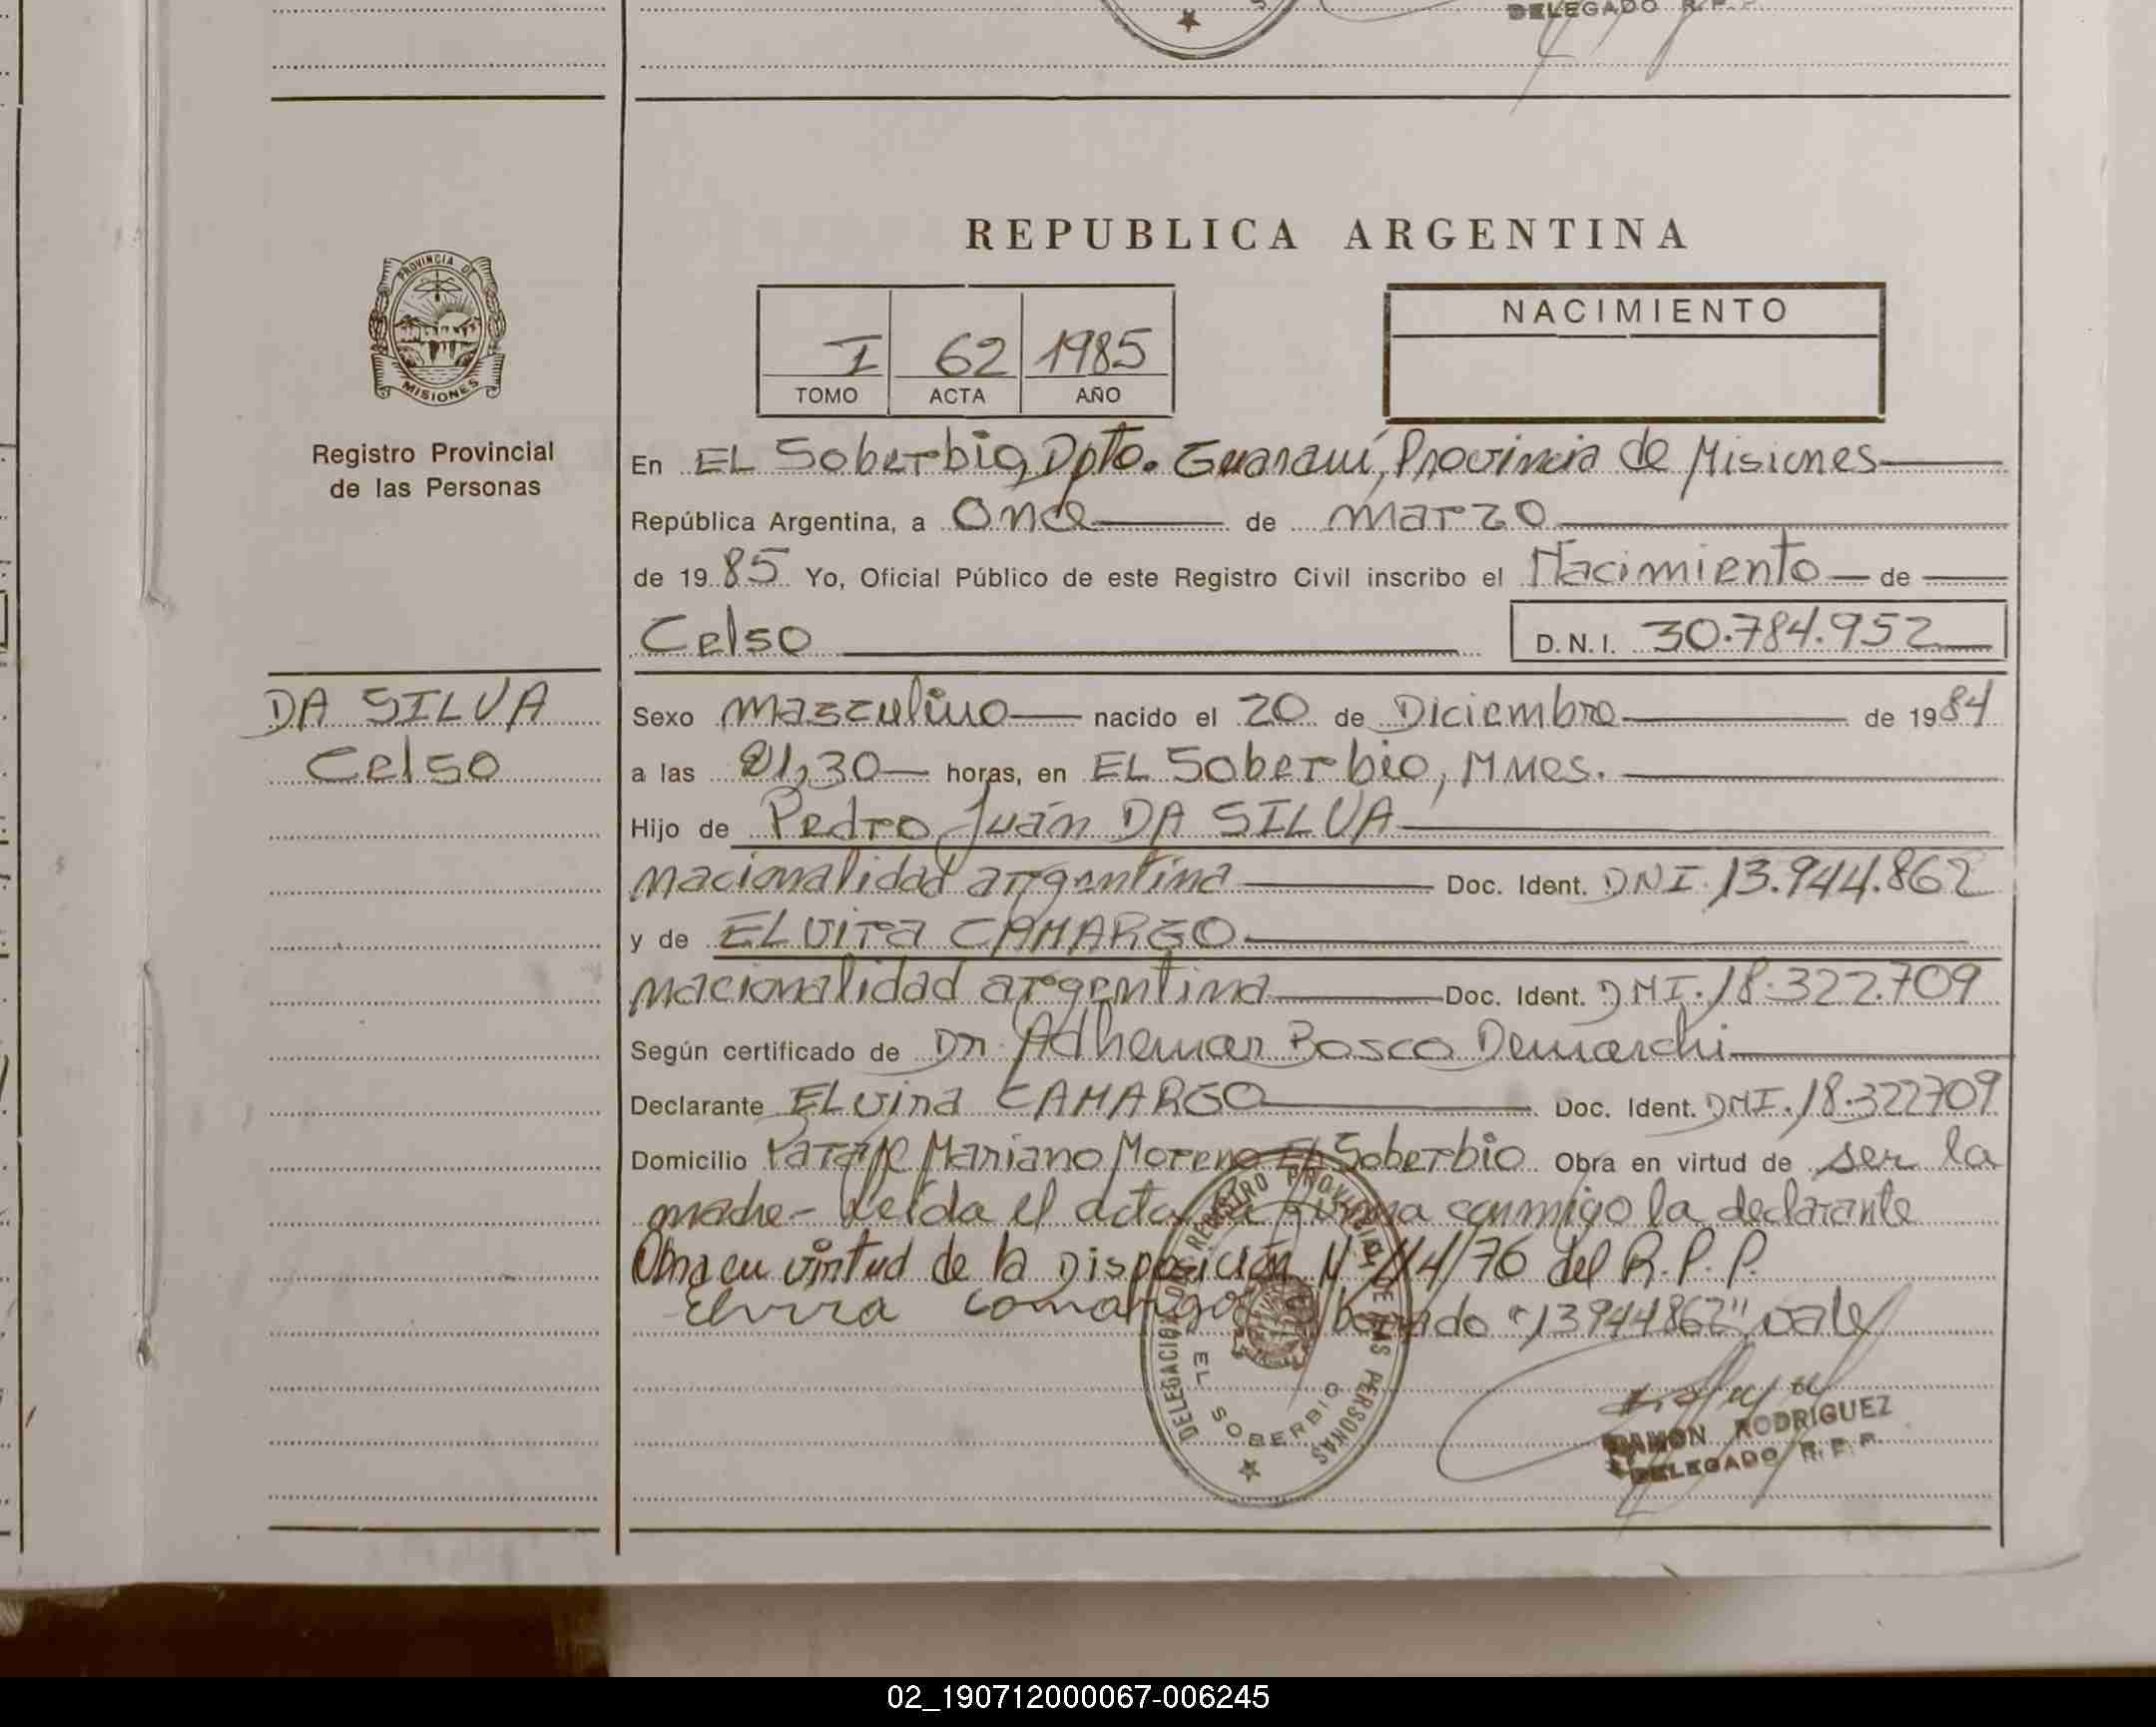 DELEGADO R. P. P.
REPUBLICA ARGENTINA
PROVINCIA DE
MISIONES
Registro Provincial
de las Personas
NACIMIENTO
I 62 1985
TOMO ACTA AÑO
En EL Soberbio, Dpto. Guaraní, Provincia de Misiones
República Argentina, a Once de marzo
de 1985 Yo, Oficial Público de este Registro Civil inscribo el Nacimiento de
Celso D.N.I. 30.784.952
DA SILVA
Celso
Sexo masculino nacido el 20 de Diciembre de 1984
a las 21,30 horas, en EL Soberbio, Mnes.
Hijo de Pedro Juán DA SILVA
nacionalidad argentina Doc. Ident. DNI. 13.944.862
y de ELvira CAMARGO
nacionalidad argentina Doc. Ident. DNI. 18.322.709
Según certificado de Dr. Adhemar Bosco Demarchi
Declarante ELvira CAMARGO Doc. Ident. DNI. 18.322709
Domicilio Paraje Mariano Moreno EL Soberbio Obra en virtud de ser la
madre - Leída el acta la firma conmigo la declarante
Obra en virtud de la Disposición Nº 114/76 del R.P.P.
Elvira Comargo borrado "13944862" vale
DELEGACION DEL REGISTRO PROVINCIAL DE LAS PERSONAS
EL SOBERBIO
RAMON RODRIGUEZ
DELEGADO R. P. P.
02_190712000067-006245